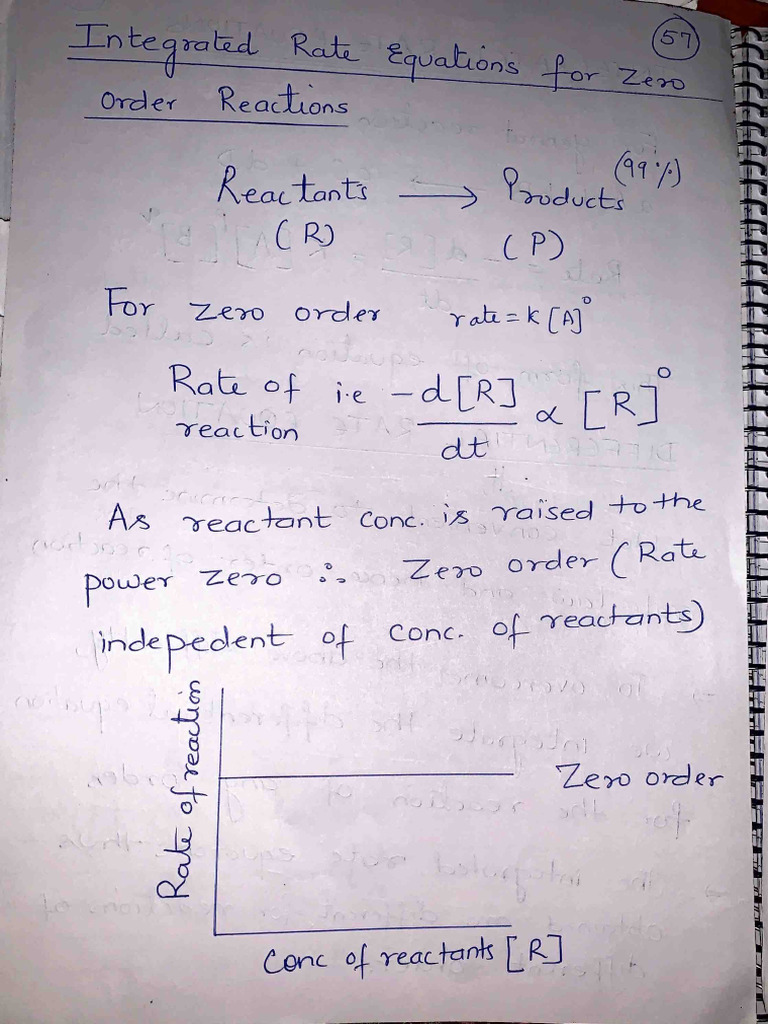 57
Integrated Rate Equations for Zero
Order Reactions
Reactants → Products (99%)
(R) (P)
For zero order rate = k[A]⁰
Rate of reaction i.e -d[R]/dt ∝ [R]⁰
As reactant conc. is raised to the
power zero ∴ Zero order (Rate
indepedent of conc. of reactants)
Rate of reaction
Zero order
Conc of reactants [R]